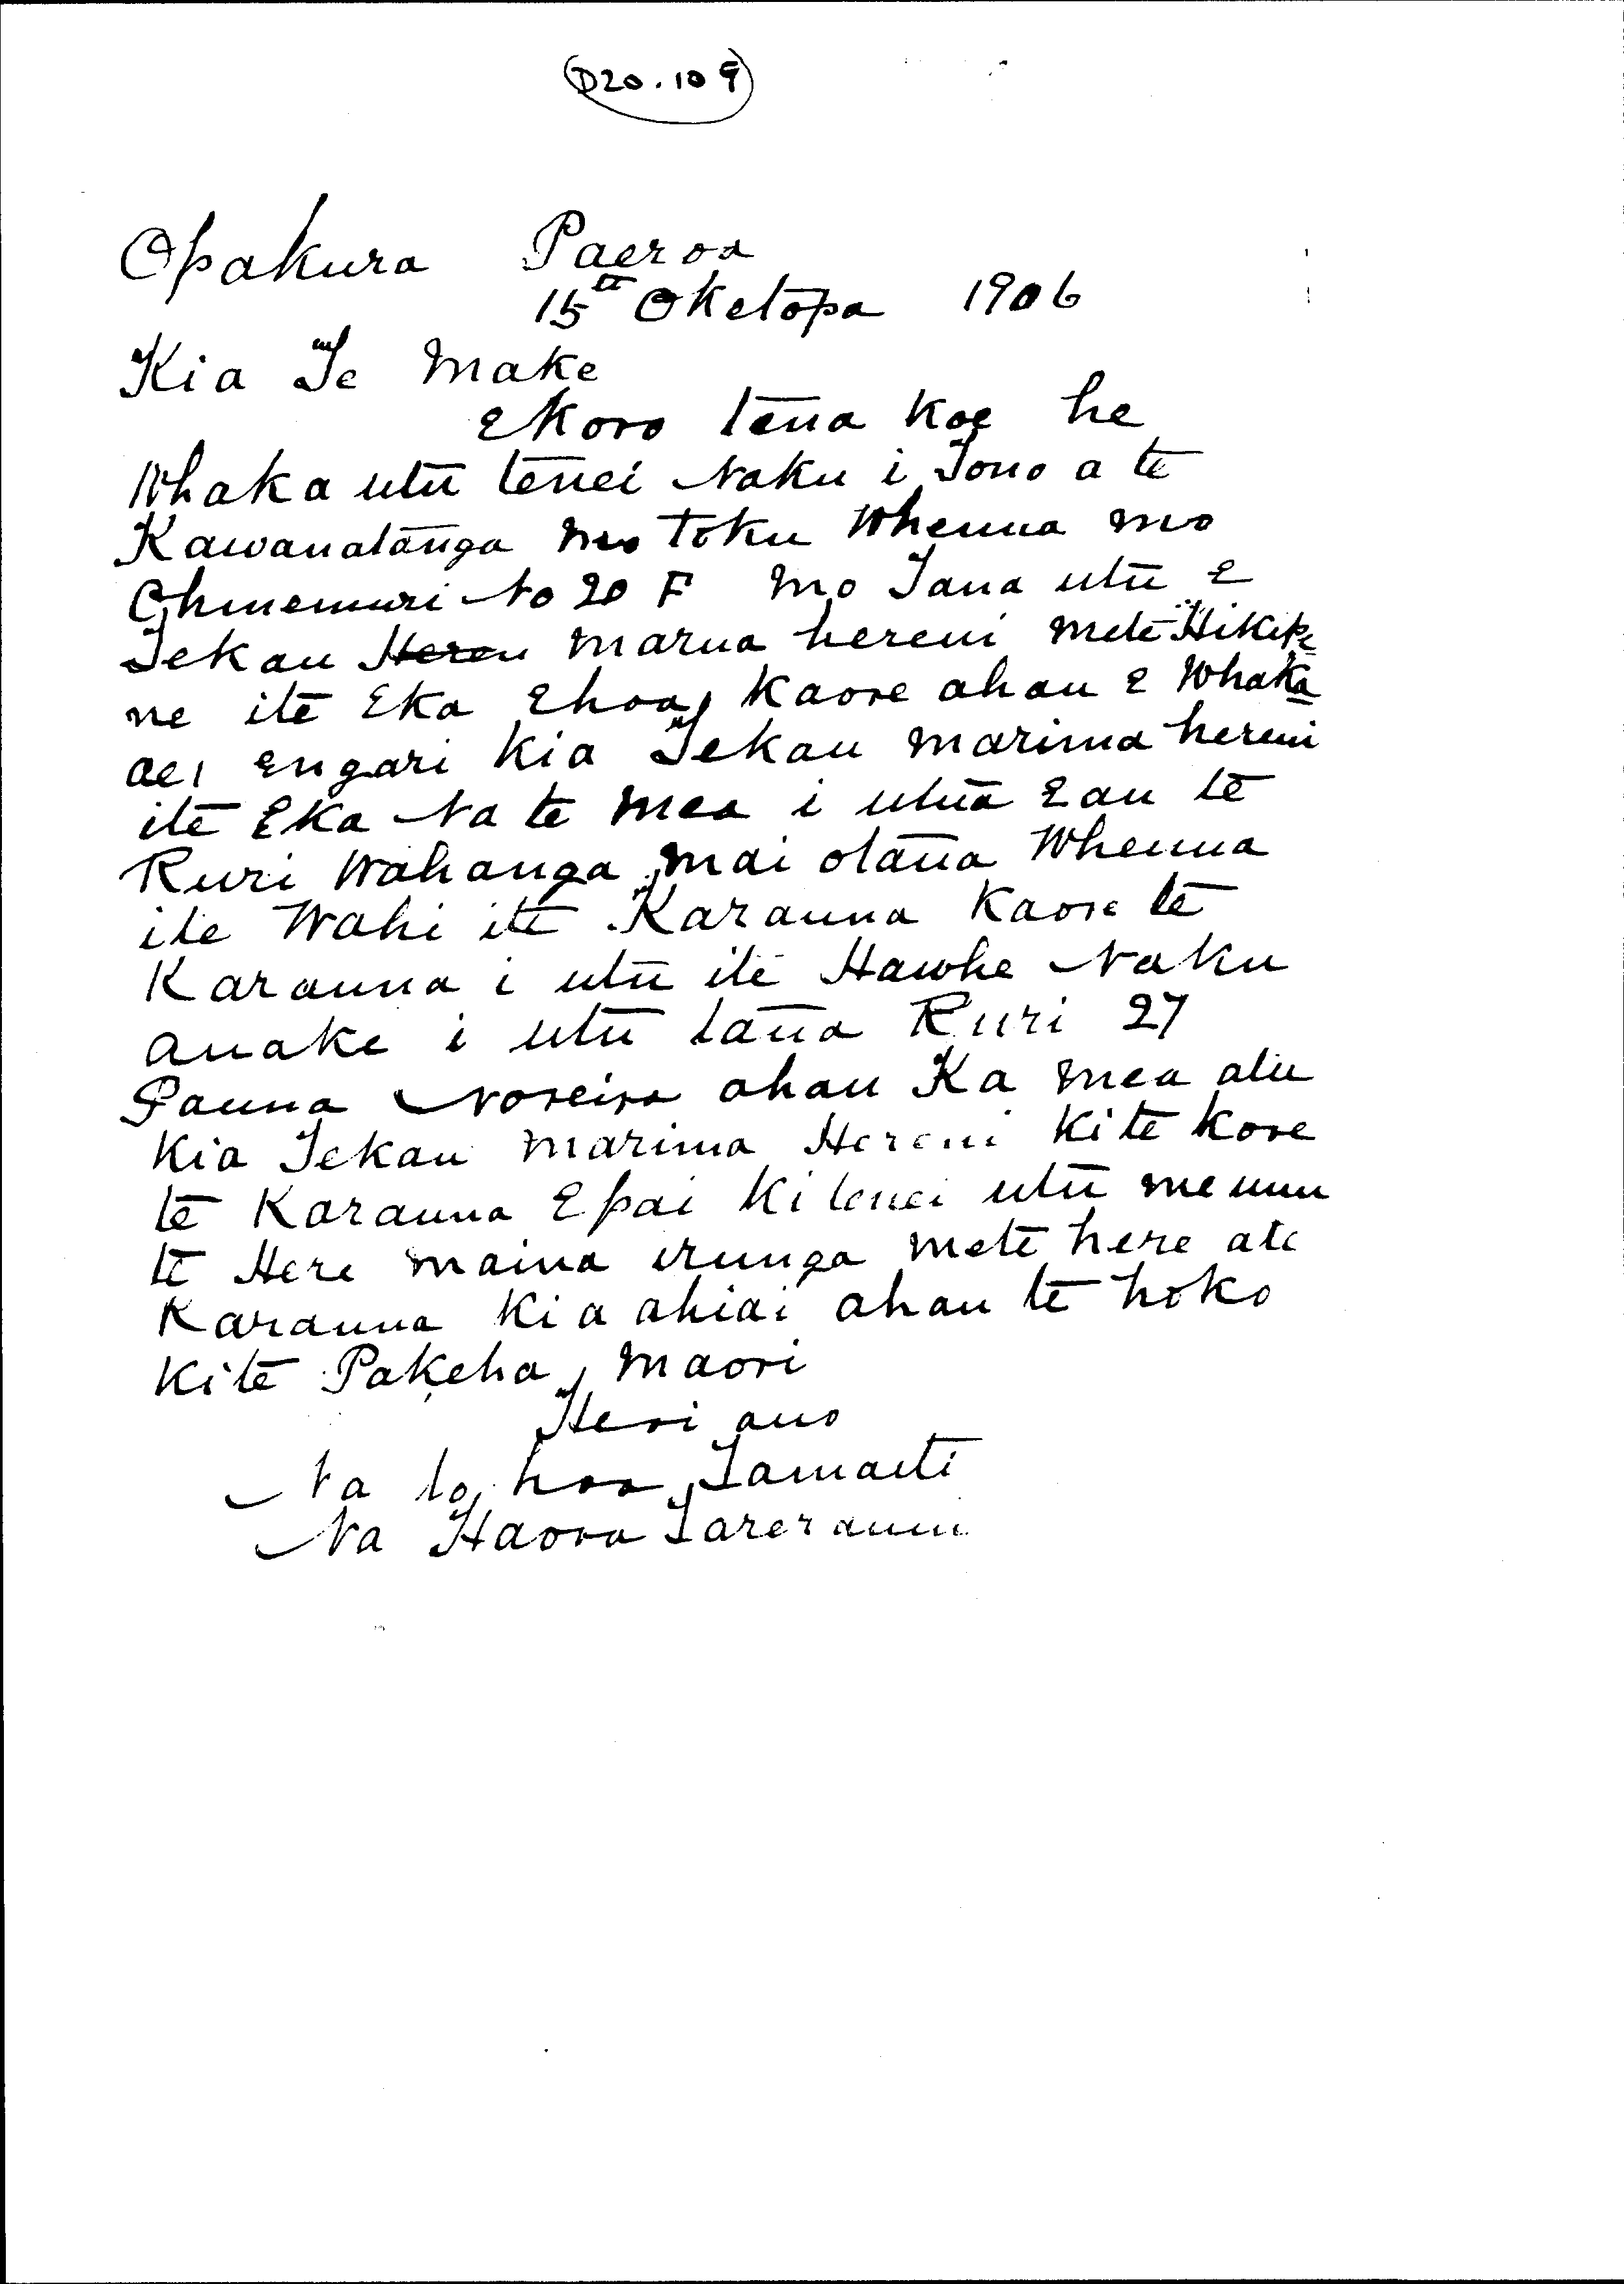 D20.109
Opakura Paeroa
15th Oketopa 1906
Kia Te Make
E Koro tena Koe he
Whaka utu tenei Naku i Tono a te
Kawanatanga mo toku Whenua mo
Ohinemuri No 20 F mo Tana utu e
Tekau Heren marua hereni mete Hikipe
ne ite Eka Ehoa, Kaore ahau e Whaka
ae, engari Kia Tekau marima hereni
ite Eka Na te mea i utua e au te
Ruri Wahanga mai otana Whenua
ite Wahi ite Karauna Kaore te
Karauna i utu ite Hawhe Naku
anake i utu tana Ruri 27
Pauna Noreira ahau Ka mea atu
Kia Tekau marima Hereni Kite kore
te Karauna E pai Ki tenei utu me unu
te Here maina irunga mete here ate
Karauna Kia ahiai ahau te hoko
Kite Pakeha, Maori
Heoi ano
Na to hoa, Tamaiti
Na Haora Tareranui